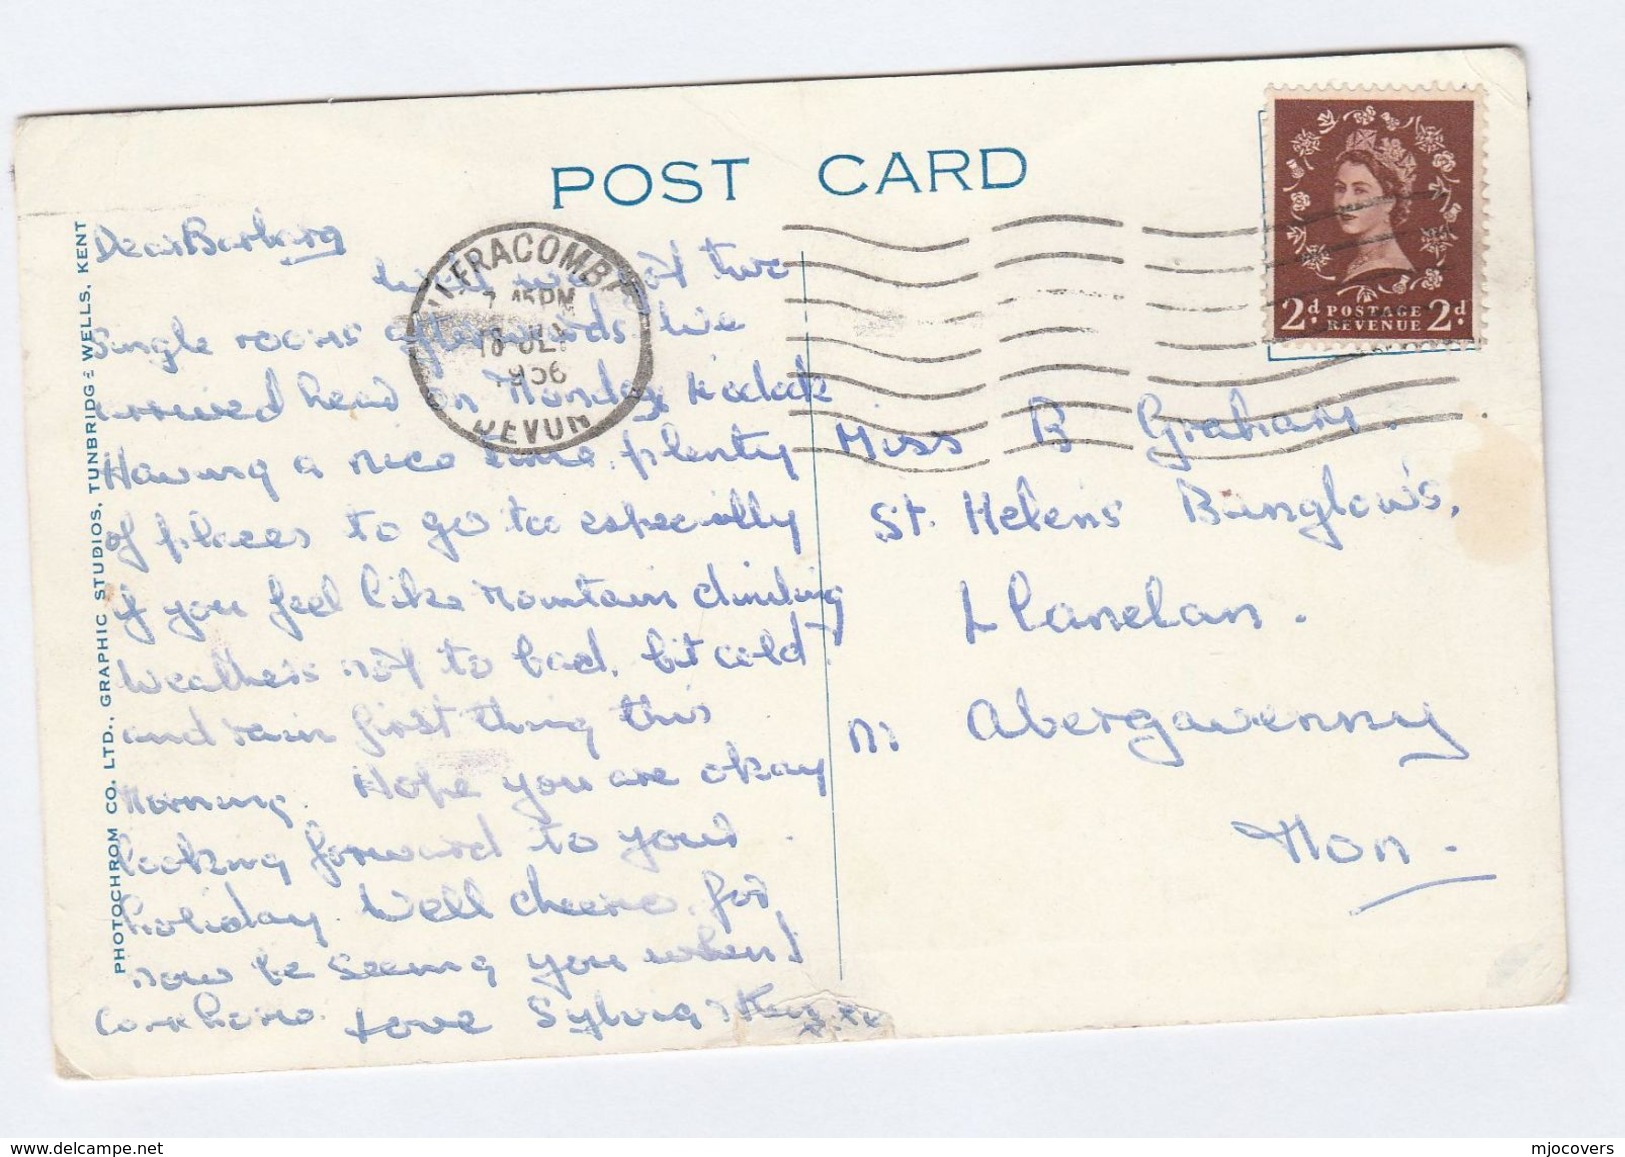 POST CARD
PHOTOCHROM CO. LTD., GRAPHIC STUDIOS, TUNBRIDGE WELLS, KENT
ILFRACOMBE
7.45PM
18 JLY
1956
DEVON
2d POSTAGE REVENUE 2d
Dear Barbara
Well we got two
Single rooms afterwards We
arrived head on Monday
Having a nice time, plenty
of places to go too especially
if you feel like mountain climbing
Weathers not to bad, bit cold
and rain first thing this
morning. Hope you are okay
looking forward to your
holiday. Well cheerio for
now be seeing you when I
come home. Love Sylvia
Miss B Graham.
St. Helens Bunglow's,
Llanelan.
Nr Abergavenny
Mon.
mjocovers